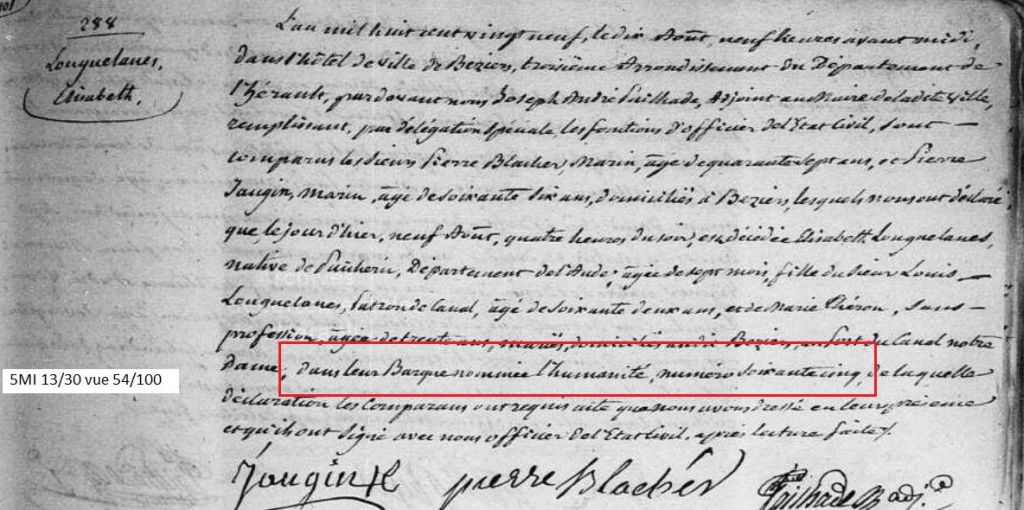 288
Louquelanes,
Elisabeth.
L'an mil huit cent vingt neuf, le dix Août, neuf heures avant midi,
dans l'hôtel de ville de Beziers, troisième Arrondissement du Département de
l'hérault, pardevant nous Joseph André Failhade, Adjoint au Maire de ladite ville,
remplissant, par délégation spéciale, les fonctions d'officier de l'Etat Civil, sont
comparus les sieurs Pierre Blacher, Marin, âgé de quarante sept ans, et Pierre
Jaugin, marin, âgé de soixante six ans, domiciliés à Beziers, lesquels nous ont déclaré
que, le jour d'hier, neuf Août, quatre heures du soir, est décédée Elisabeth Louquelanes,
native de, Département de l'Aude, âgée de sept mois, fille du sieur Louis
Louquelanes, Patron de Canal, âgé de soixante deux ans, et de Marie Théron, sans
profession, âgée de trente ans, mariés, domiciliés audit Beziers, au Port du Canal notre
Dame, dans leur Barque nommée l'humanité, numéro soixante cinq, de laquelle
déclaration les Comparans ont requis acte que nous avons dressé en leur présence
et qu'ils ont signé avec nous officier de l'Etat Civil, après lecture faite.
5MI 13/30 vue 54/100
Jaugin pierre Blacher Failhade adj.